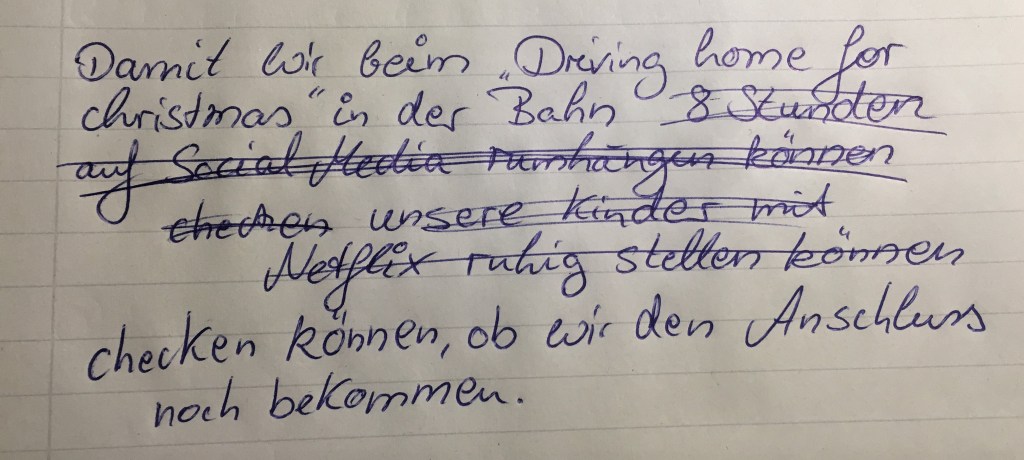 Damit wir beim „Driving home for
christmas" in der Bahn 8 Stunden
auf Social Media rumhängen können
checken unsere Kinder mit
Netflix ruhig stellen können
checken können, ob wir den Anschluss
noch bekommen.